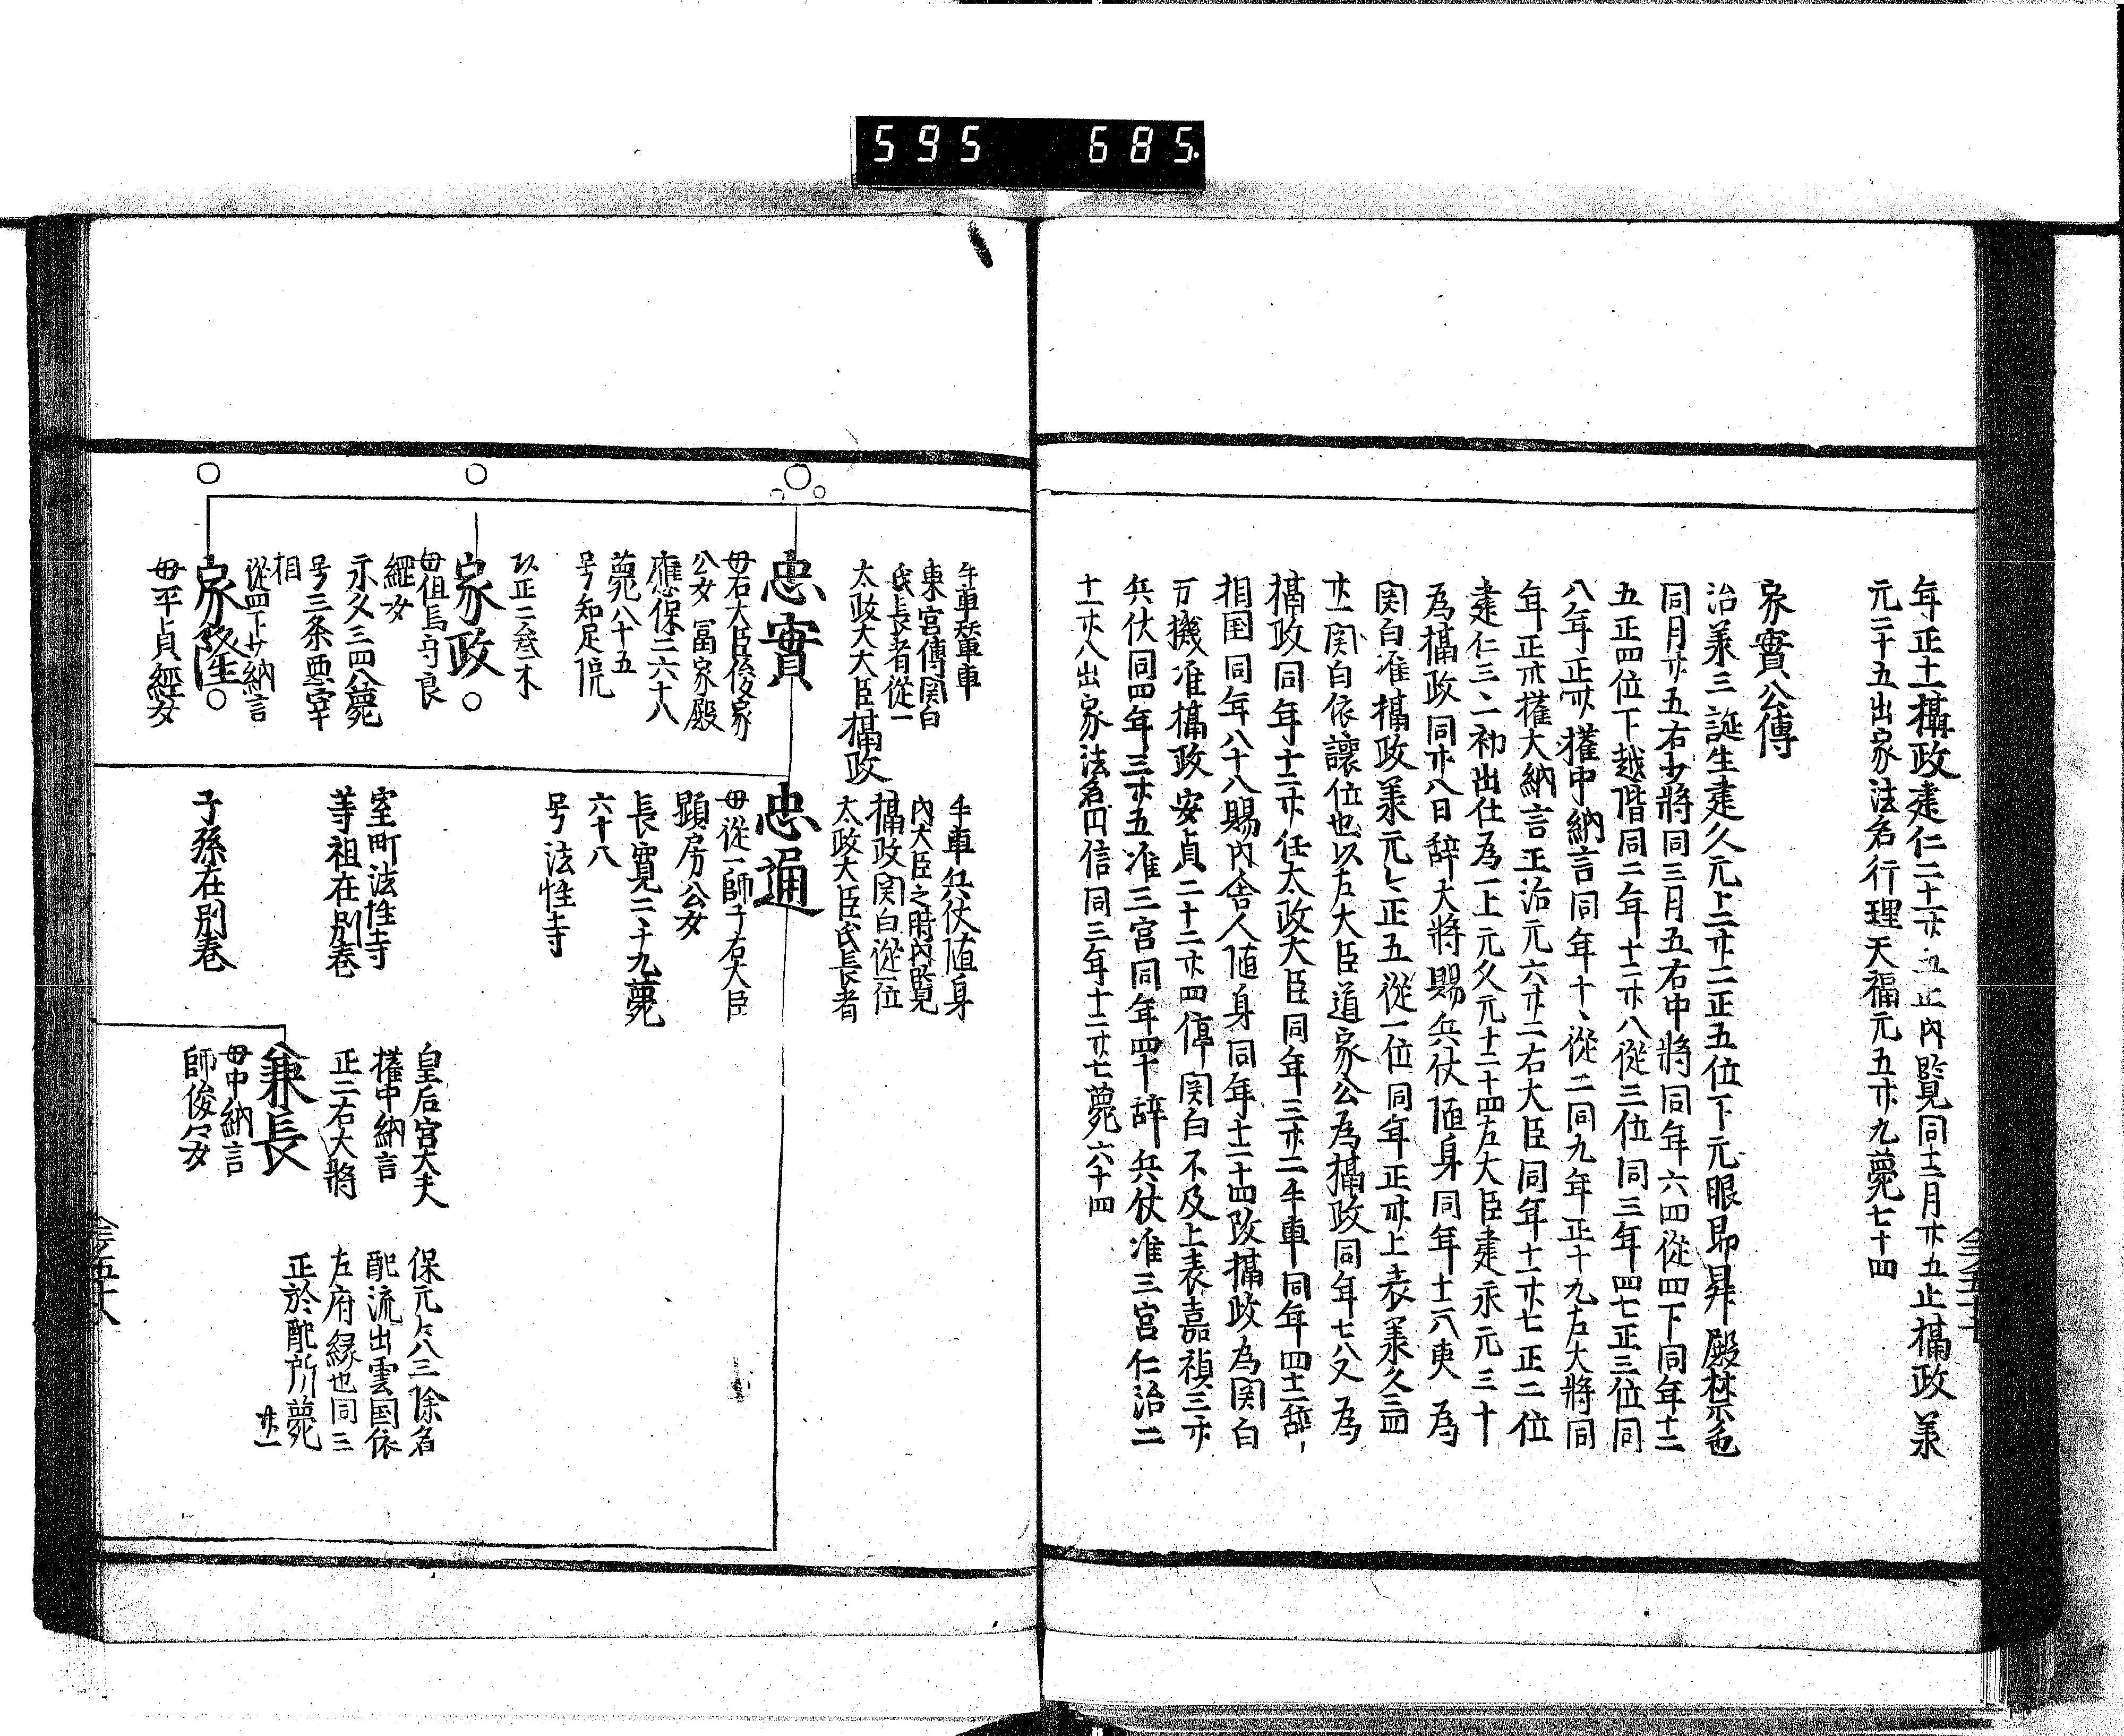 595 685.
年正土攝政建仁二十一廿五止内覽同十二月廿五止攝政羕
元二十五出家法名行理天福元五廿九薨七十四
家實公傳
治羕三誕生建久元ト二廿二正五位下元服昇殿禁色
同月廿五右少將同三月五右中將同年六四從四下同年十二
五正四位下越階同二年十二廿八從三位同三年四七正三位同
八年正卅權中納言同年十、從二同九年正十九左大將同
年正卅權大納言正治元六廿二右大臣同年十一廿七正二位
建仁三二初出仕為一上元久元十二十四左大臣建永元三十
為攝政同廿八日辞大將賜兵仗随身同年十二八更為
関白准攝政羕元々正五從一位同年正卅上表羕久三四
廿一関白依讓位也以左大臣道家公為攝政同年七八又為
攝政同年十二廿任太政大臣同年三廿二牛車同年四十二辞、
相国同年八十八賜内舎人随身同年十二十四改攝政為関白
万機准攝政安貞二十二廿四停関白不及上表嘉禎三廿
兵仗同四年三廿五准三宮同年四十辞兵仗准三宮仁治二
十一廿八出家法名円信同三年十二廿七薨六十四
牛車輦車
東宮傳関白
氏長者從一
太政大大臣攝政
忠實
母右大臣俊家
公女 冨家殿
應保二六十八
薨八十五
号知足院
以正二叄木
家政
母但馬守良
經女
永久三四八薨
号三条悪宰
相
從四下少納言
家隆
母平貞經女
牛車兵仗随身
内大臣之時内覧
攝政関白從一位
太政大臣氏長者
忠通
母從一師子右大臣
顕房公女
長寛二二十九薨
六十八
号法性寺
室町法性寺
等祖在別巻
子孫在別巻
皇后宮大夫
權中納言
正二右大將
兼長
母中納言
師俊女
保元々八三除名
配流出雲国依
左府縁也同三
正於配所薨
廿一